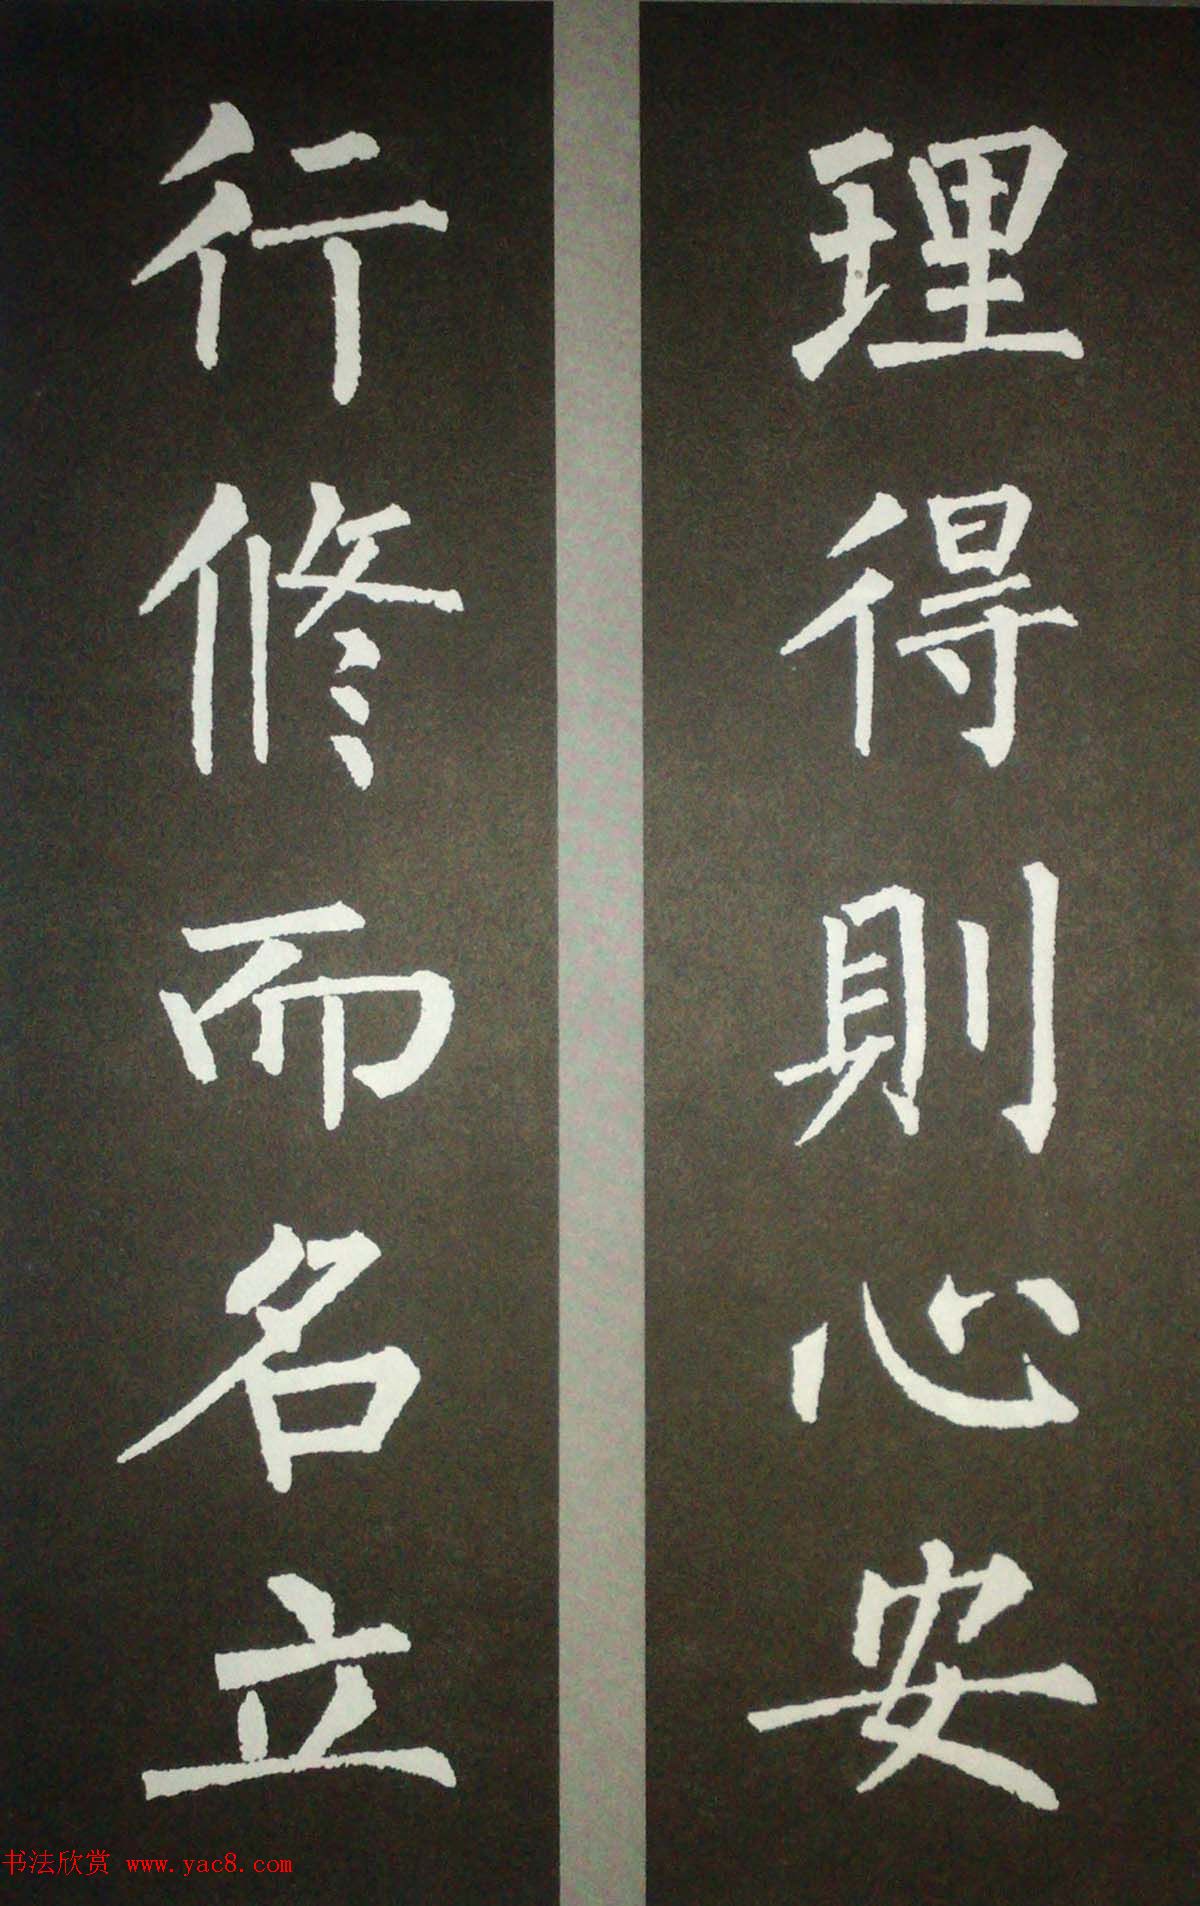 理得則心安
行修而名立
书法欣赏 www.yac8.com